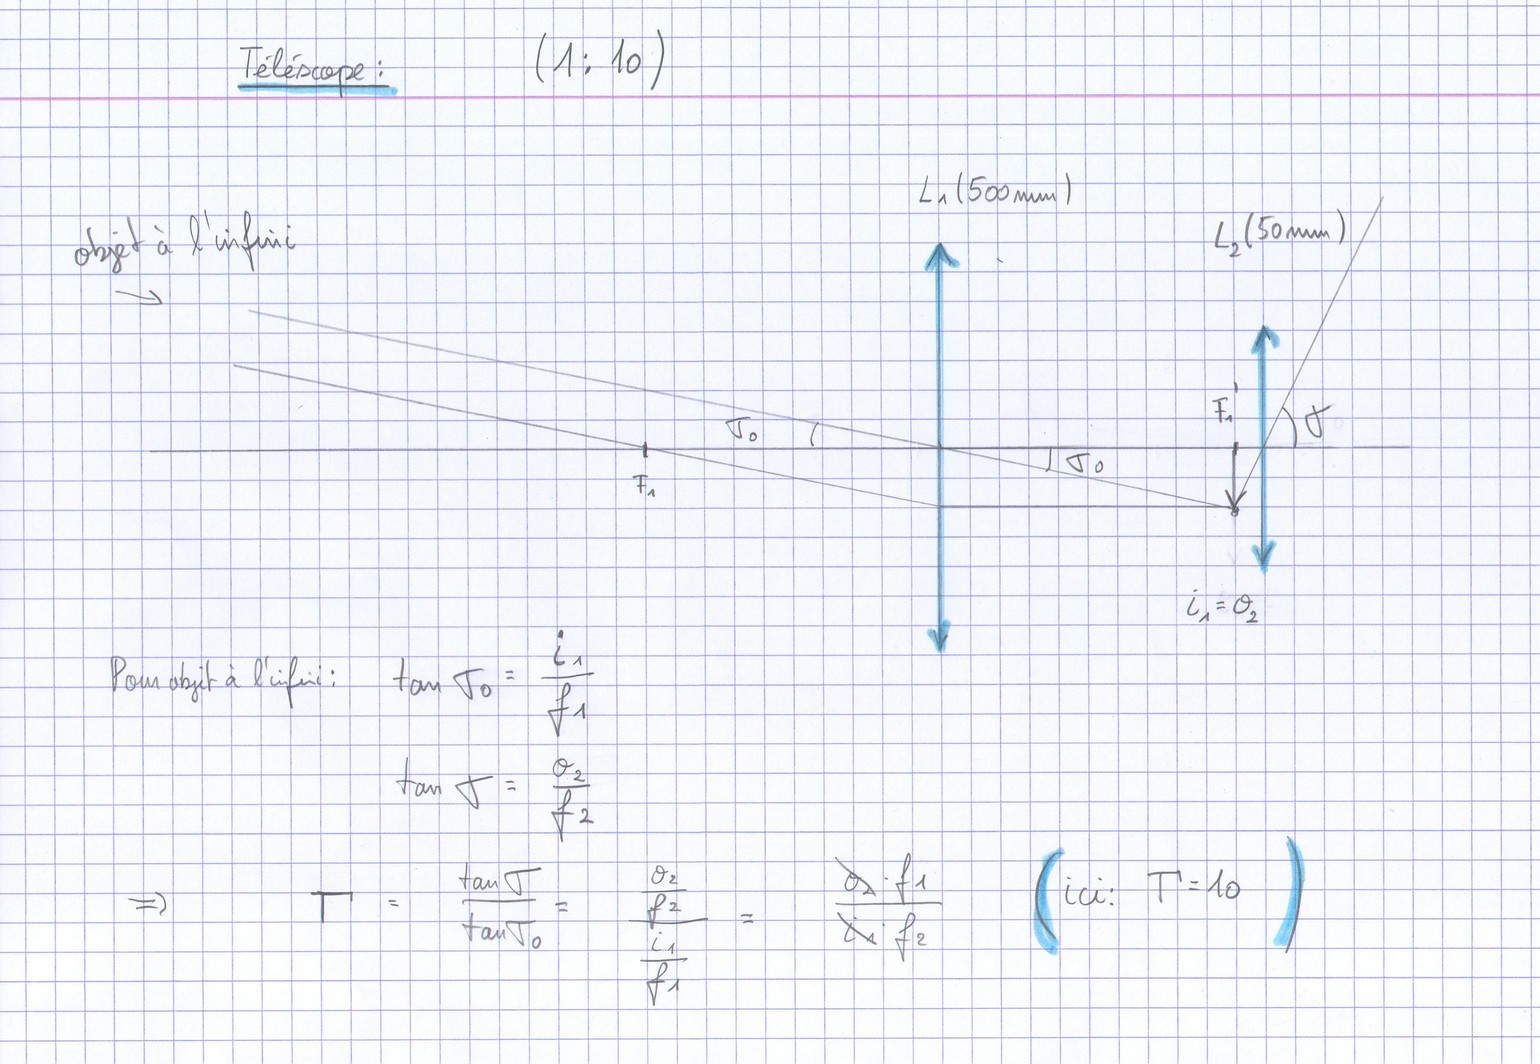 Téléscope: (1:10)
L₁(500mm)
L₂(50mm)
objet à l'infini
→
F₁'
σ₀
σ
σ₀
F₁
i₁=o₂
Pour objet à l'infini: tan σ₀ = i₁/f₁
tan σ = o₂/f₂
⇒ Γ = tan σ/tan σ₀ = (o₂/f₂)/(i₁/f₁) = o₂·f₁/i₁·f₂ (ici: Γ=10)